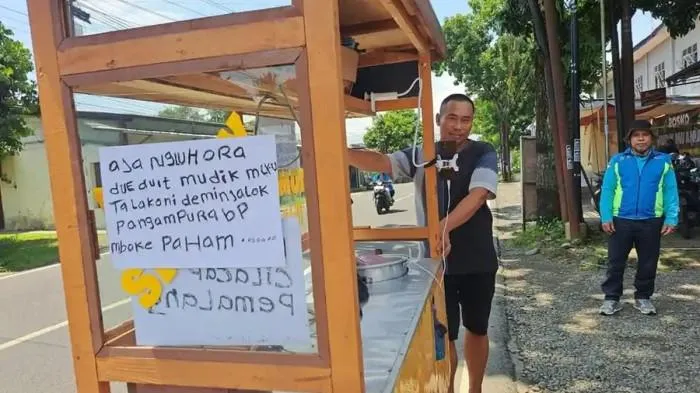 aJa ORA
DUE duit mudik mLaKu
TaLaKoni demi nJaLOK
PangamPURa bP
mboke PaHam ........
CILACAP
PemaLang
POSKO